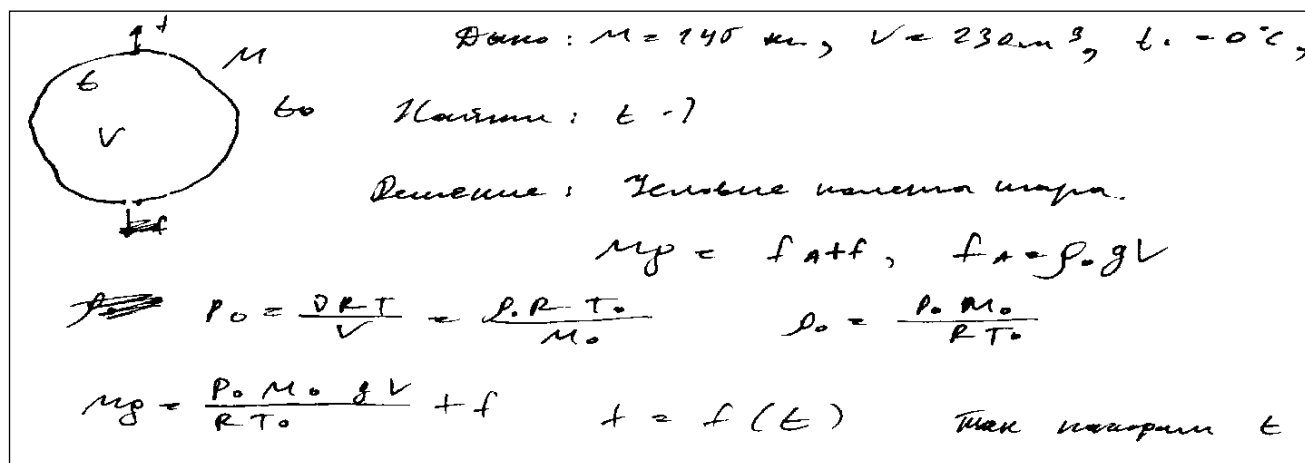 f
t M
V t₀
Дано: M = 145 кг, V = 230 m³, t₀ = 0°C,
Найти: t - ?
Решение: Условие полета шара.
f
Mg = f_A + f, f_A = ρ₀ g V
P₀ = νRT/V = ρ₀ R T₀/M₀ ρ₀ = P₀ M₀/R T₀
Mg = P₀ M₀ g V/R T₀ + f f = f(t) так находим t